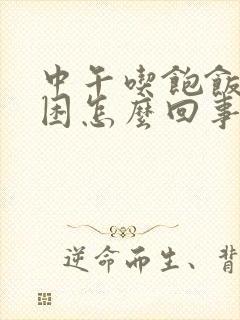 中午喫飽飯
困怎麼回事
逆命而生、背